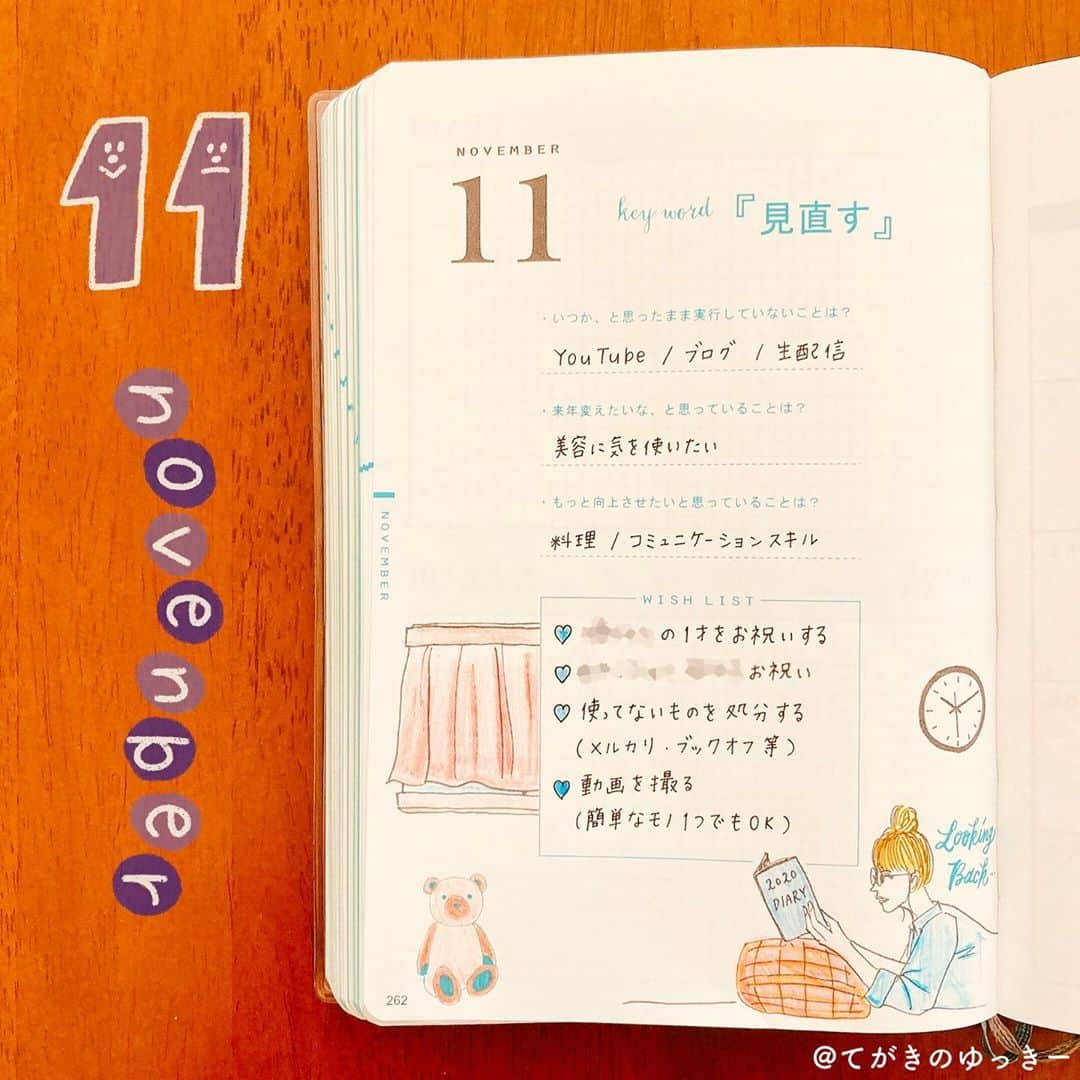 11
novenber
NOVEMBER
11
key word 『見直す』
・いつか、と思ったまま実行していないことは？
YouTube / ブログ / 生配信
・来年変えたいな、と思っていることは？
美容に気を使いたい
・もっと向上させたいと思っていることは？
料理 / コミュニケーションスキル
NOVEMBER
WISH LIST
の1才をお祝いする
お祝い
使ってないものを処分する
(メルカリ・ブックオフ等)
動画を撮る
(簡単なモノ1つでもOK)
2020
DIARY
Looking
Back
262
@てがきのゆっきー